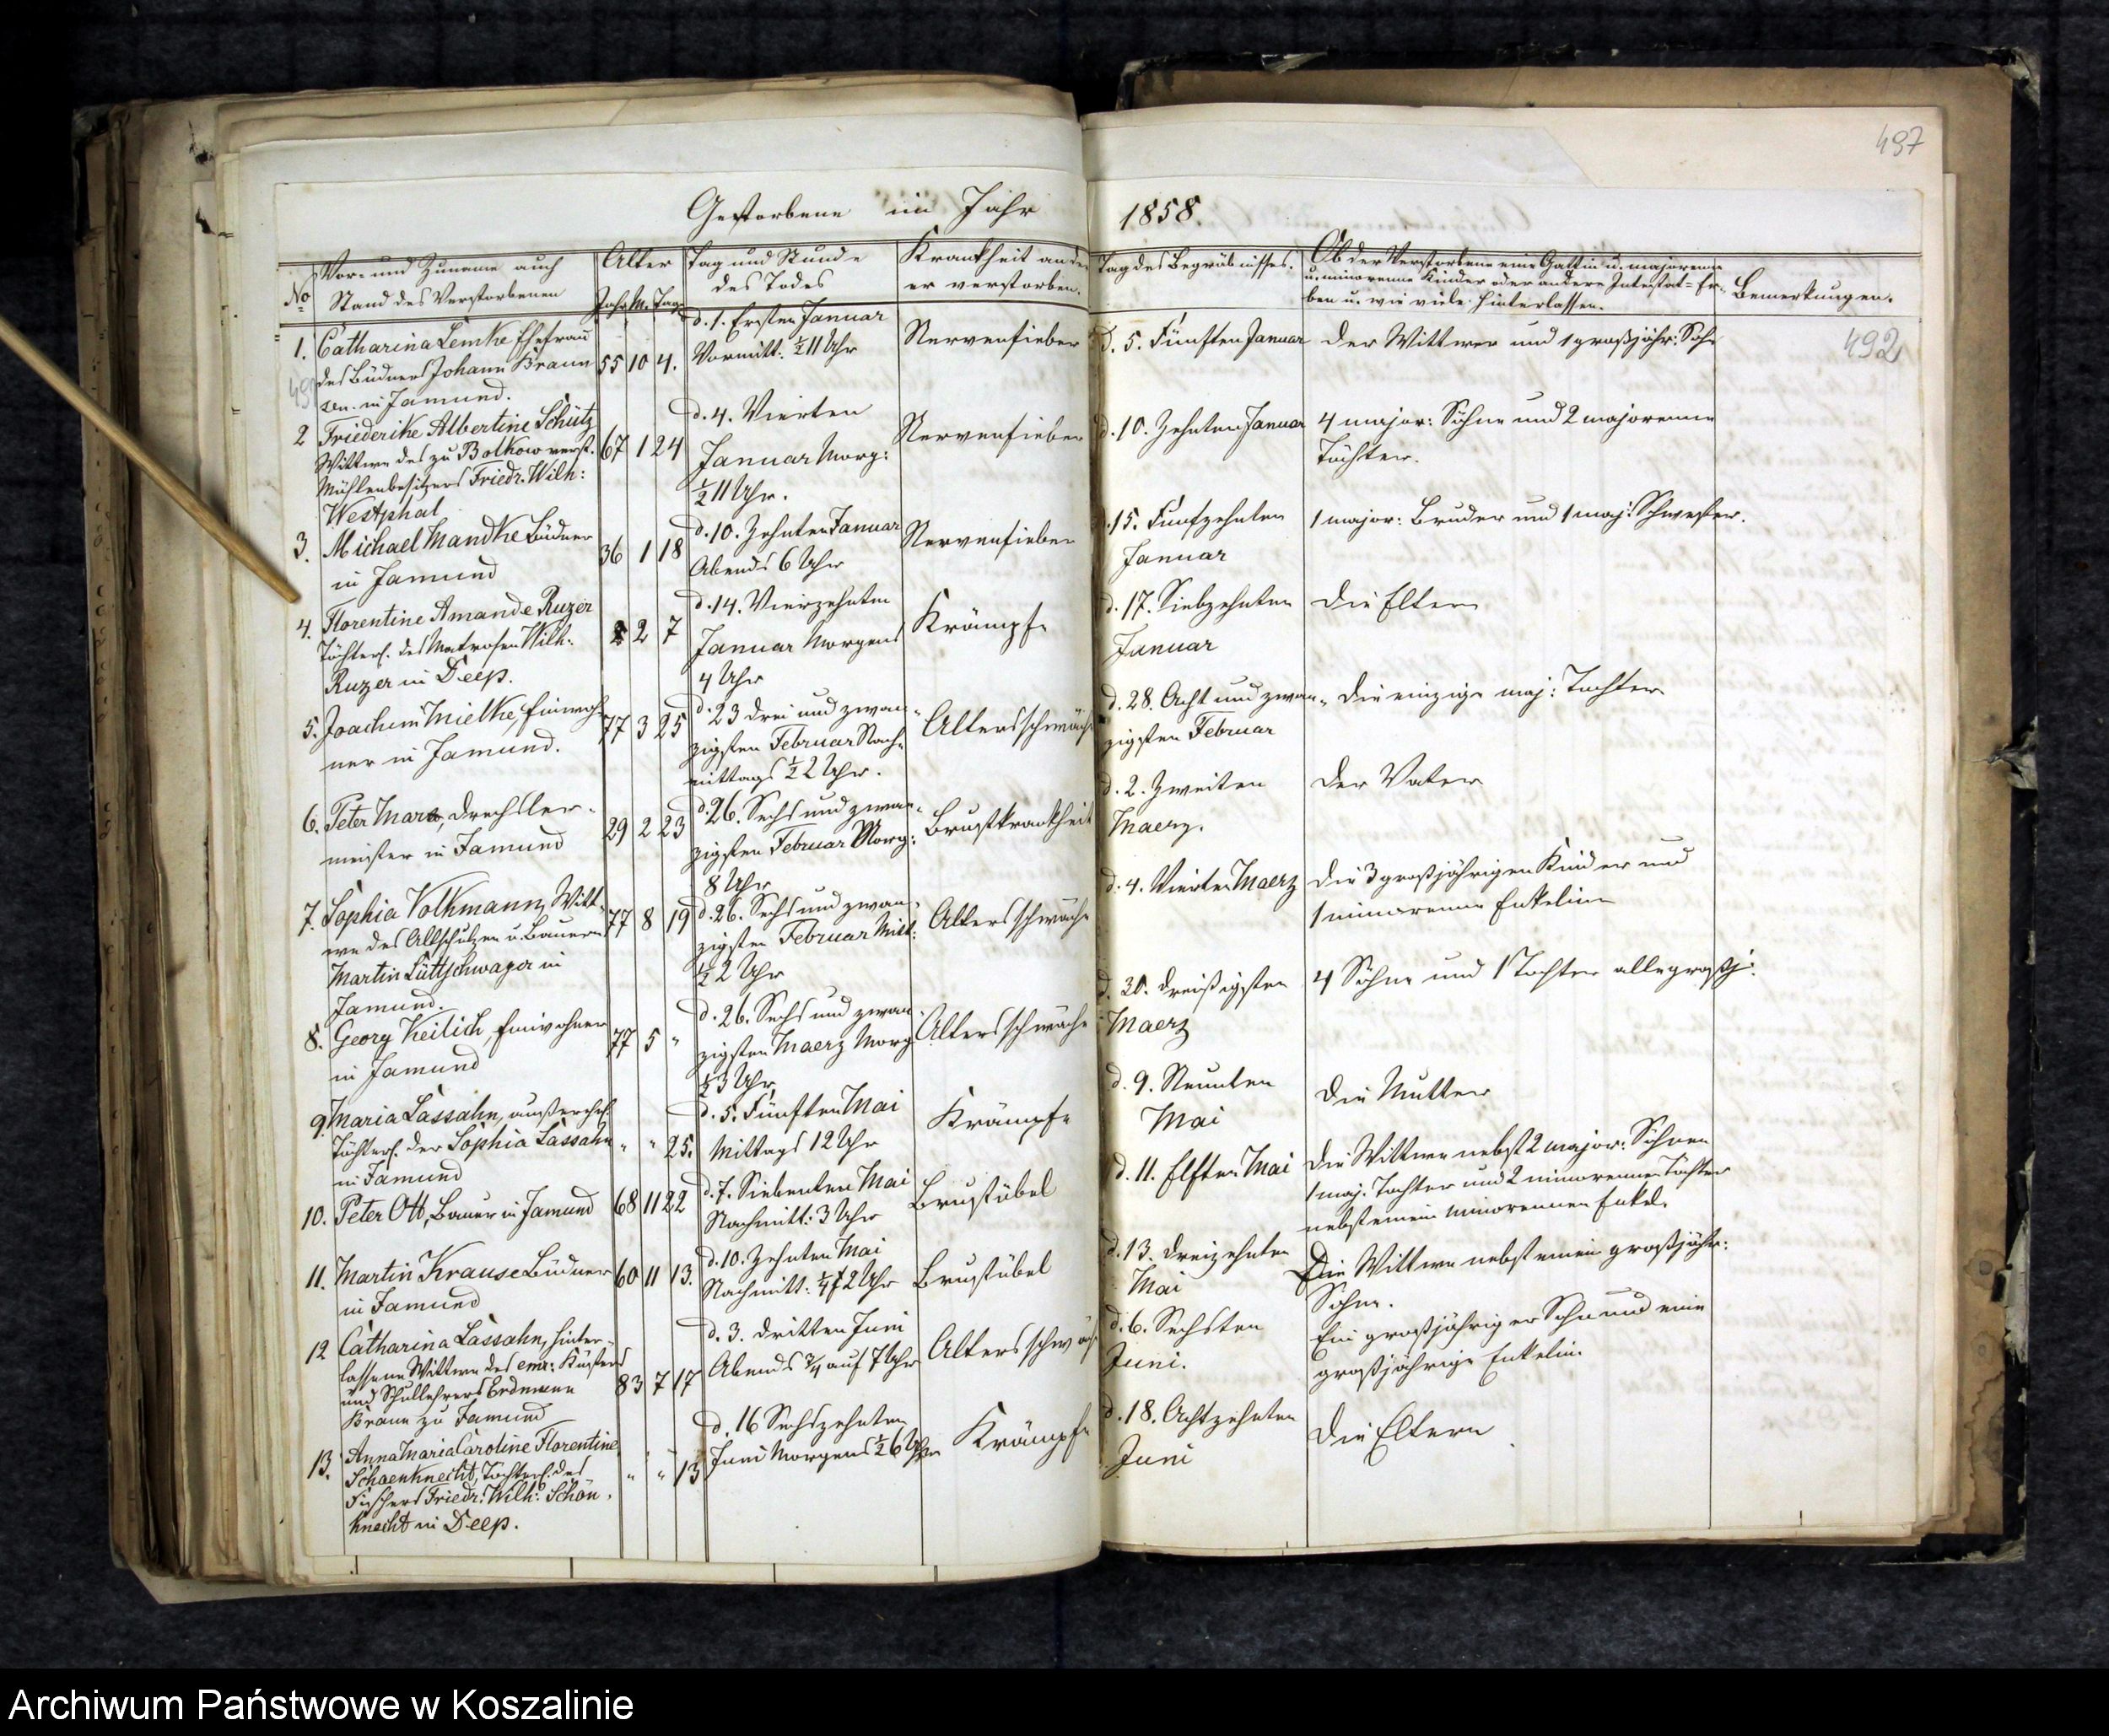 497
Gestorbene im Jahr 1858.
No
Vor- und Zuname auch
Stand des Verstorbenen
Alter
Jahr M. Tag
Tag und Stunde
des Todes
Krankheit an der
er verstorben.
Tag des Begräbnisses.
Ob der Verstorbene eine Gattin u. majorenne
u. minorenne Kinder oder andere Intestat-Er-
ben u. wie viele hinterlassen.
Bemerkungen.
492
1. Catharina Lemke Ehefrau
des Büdners Johann Braun
sen. in Jamund.
55 10 4.
d. 1. Ersten Januar
Vormitt: ½ 11 Uhr
Nervenfieber
d. 5. Fünften Januar
Der Wittwer und 1 großjähr: Sohn
2 Friederike Albertine Schütz
Wittwe des zu Bolkow verst.
Mühlenbesitzers Friedr. Wilh:
Westphal
67 1 24
d. 4. Vierten
Januar Morg:
½ 11 Uhr.
Nervenfieber
d. 10. Zehnten Januar
4 major: Söhne und 2 majorenne
Töchter.
3. Michael Mandke Büdner
in Jamund
36 1 18
d. 10. Zehnten Januar
Abends 6 Uhr
Nervenfieber
d. 15. Funfzehnten
Januar
1 major: Bruder und 1 maj: Schwester.
4. Florentine Amande Ruzer
Töchterl. des Matrosen Wilh:
Ruzer in Deep.
2 7
d. 14. Vierzehnten
Januar Morgens
4 Uhr
Krämpfe
d. 17. Siebzehnten
Januar
Die Eltern
5. Joachim Mielke, Einwoh-
ner in Jamund.
77 3 25
d. 23 Drei und zwan-
zigsten Februar Nach-
mittags ½ 2 Uhr.
Altersschwäche
d. 28. Acht und zwan-
zigsten Februar
Die einzige maj: Tochter
6. Peter Marx, Drechsler-
meister in Jamund
29 2 23
d. 26. Sechs und zwan-
zigsten Februar Morg:
8 Uhr
Brustkrankheit
d. 2. Zweiten
Maerz.
Der Vater
7. Sophia Volkmann, Witt-
we des Altschulzen u. Bauern
Martin Lüttschwager in
Jamund.
77 8 19
d. 26. Sechs und zwan-
zigsten Februar Mitt:
½ 2 Uhr
Altersschwäche
d. 4. Vierten Maerz
Die 3 großjährigen Kinder und
1 minorenne Enkelin
8. Georg Keilich, Einwohner
in Jamund
77 5 "
d. 26. Sechs und zwan-
zigsten Maerz Morg
½ 3 Uhr
Altersschwäche
d. 30. Dreißigsten
Maerz
4 Söhne und 1 Tochter alle großj:
9. Maria Lassahn, außerehel.
Töchterl. der Sophia Lassahn
in Jamund
" " 25.
d. 5. Fünften Mai
Mittags 12 Uhr
Krämpfe
d. 9. Neunten
Mai
Die Mutter
10. Peter Ott, Bauer in Jamund
68 11 22
d. 7. Siebenten Mai
Nachmitt: 3 Uhr
Brustübel
d. 11. Elften Mai
Die Wittwe nebst 2 major: Söhnen
1 maj. Tochter und 2 minorennen Töchter
nebst einem minorennen Enkel.
11. Martin Krause Büdner
in Jamund
60 11 13.
d. 10. Zehnten Mai
Nachmitt: 2 Uhr
Brustübel
d. 13. Dreizehnten
Mai
Die Wittwe nebst einem großjähr:
Sohne.
12 Catharina Lassahn, hinter-
lassene Wittwe des emer: Küsters
und Schullehrers Erdmann
Braun zu Jamund
83 7 17
d. 3. Dritten Juni
Abends ¾ auf 7 Uhr
Altersschwäche
d. 6. Sechsten
Juni.
Ein großjähriger Sohn und eine
großjährige Enkelin.
13. Anna Maria Caroline Florentine
Schoenknecht, Töchterl. des
Fischers Friedr: Wilh: Schön-
knecht in Deep.
" " 13
d. 16 Sechszehnten
Juni Morgens ½ 6 Uhr
Krämpfe
d. 18. Achtzehnten
Juni
Die Eltern
Archiwum Państwowe w Koszalinie